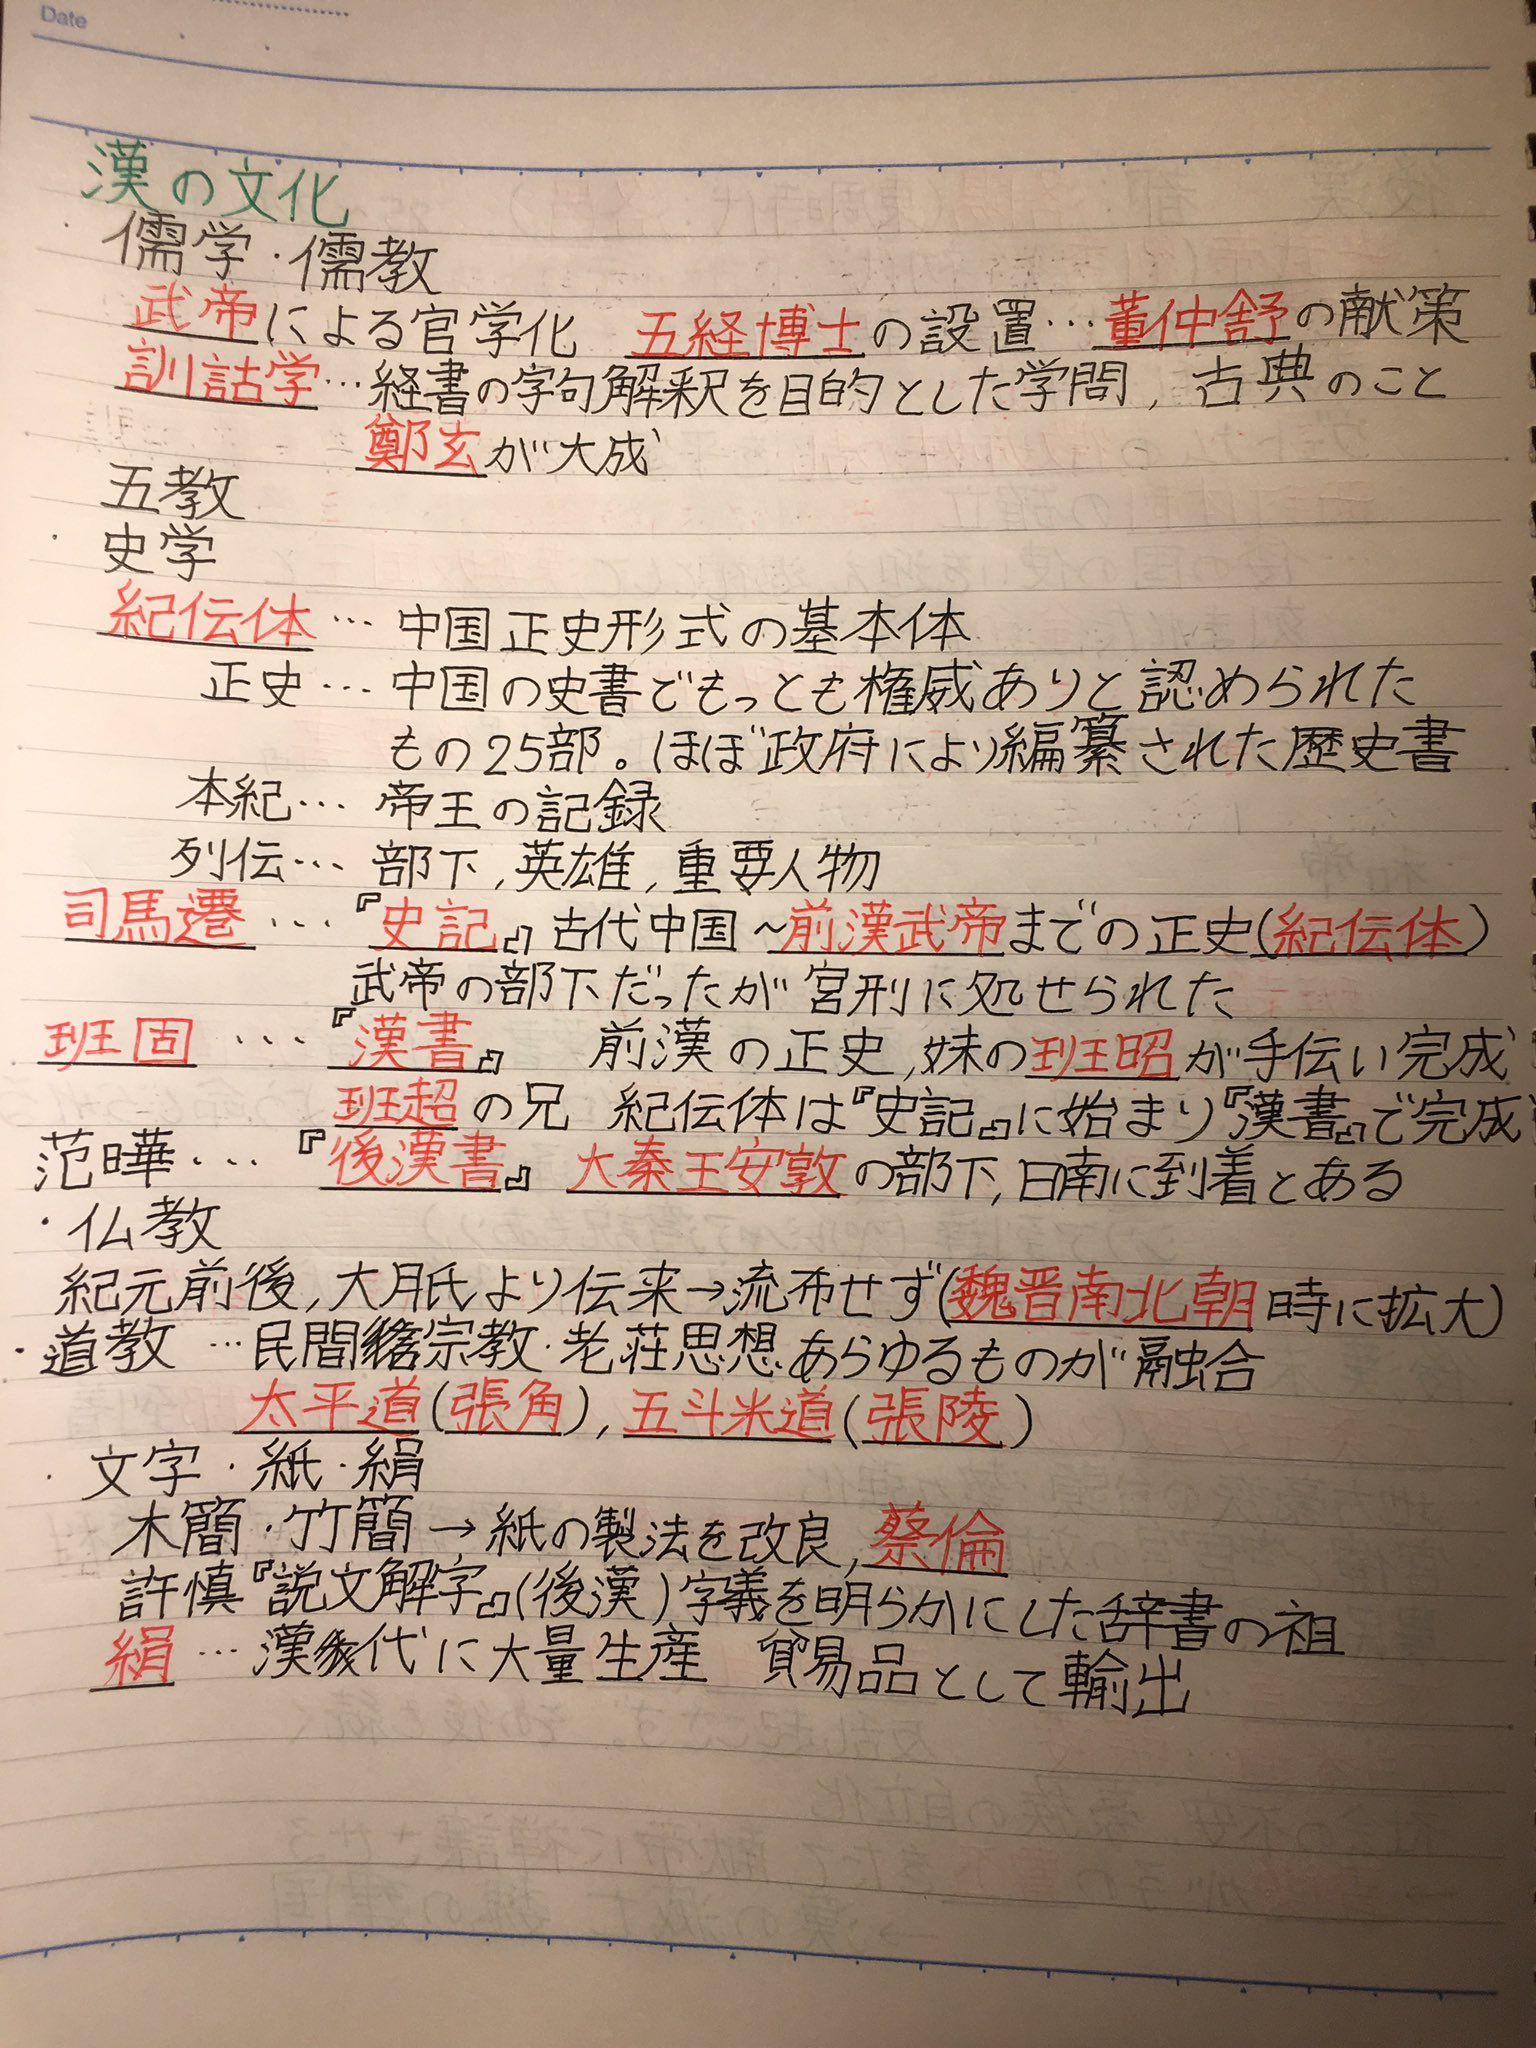 Date
漢の文化
・儒学・儒教
武帝による官学化 五経博士の設置…董仲舒の献策
訓詁学…経書の字句解釈を目的とした学問, 古典のこと
鄭玄が大成
五教
・史学
紀伝体…中国正史形式の基本体
正史…中国の史書でもっとも権威ありと認められた
もの25部。ほぼ政府により編纂された歴史書
本紀…帝王の記録
列伝…部下, 英雄, 重要人物
司馬遷…『史記』古代中国~前漢武帝までの正史(紀伝体)
武帝の部下だったが宮刑に処せられた
班固…『漢書』 前漢の正史, 妹の班昭が手伝い完成
班超の兄 紀伝体は『史記』に始まり『漢書』で完成
范曄…『後漢書』 大秦王安敦の部下, 日南に到着とある
・仏教
紀元前後, 大月氏より伝来→流布せず(魏晋南北朝時に拡大)
・道教…民間宗教・老荘思想あらゆるものが融合
太平道(張角), 五斗米道(張陵)
・文字・紙・絹
木簡・竹簡→紙の製法を改良, 蔡倫
許慎『説文解字』(後漢)字義を明らかにした辞書の祖
絹…漢代に大量生産 貿易品として輸出